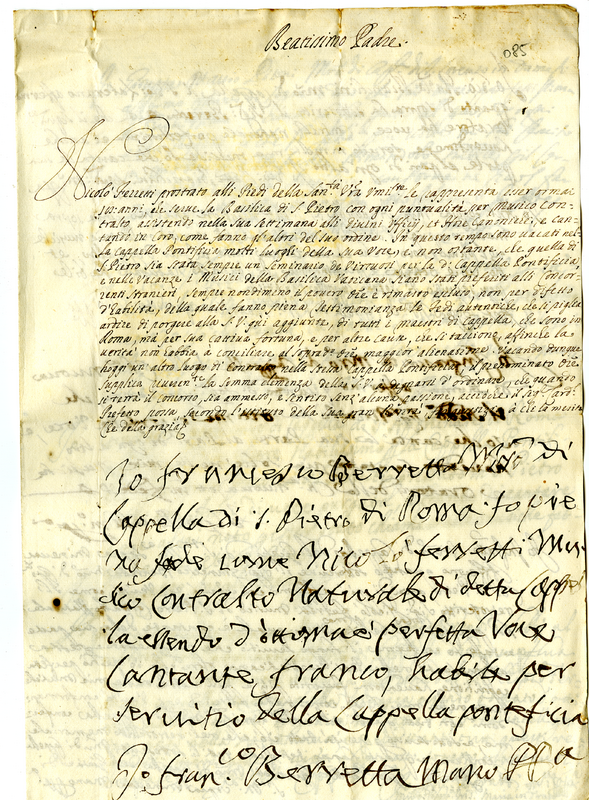 Beatissimo Padre.
085
Nicolò Ferretti prostrato alli Piedi della San.tà V̄ra Umil.te le rappresenta esser ormai
anni, che serve la Basilica di S. Pietro con ogni puntualità per Musico Con-
tralto, assistendo nella sua settimana alli Divini Officij, et Hore Canoniche, e can-
tando in Coro, come fanno gl'altri del suo ordine. In questo tempo sono vacati nel-
la Cappella Pontificia molti luoghi della sua Voce, e non ostante, che quella di
S. Pietro sia stata sempre un Seminario de Virtuosi per la d.a Cappella Pontificia,
e nelle Vacanze i Musici della Basilica Vaticana siano stati preferiti alli Concor-
renti Stranieri, sempre nondimeno il povero Ore è rimasto escluso, non per difetto
d'habilità, della quale fanno piena testimonianza le fedi autentiche, che si piglia
ardire di porgere alla S. V. qui aggiunte, di tutti i maestri di Cappella, che sono in
Roma, ma per sua cattiva fortuna, e per altre cause, che si tacciono, affinche la
verità non habbia à conciliare al sopra.to Ore maggior alienatione. Vacando dunque
hoggi un altro luogo di Contralto nella stessa Cappella Pontificia, il prenominato Ore
supplica la somma clemenza della S. V. d'ordinare, che quando
si terrà il concorso, sia ammesso, e sentito senz'alcuna passione, acciòche il Sig.r Card.
Prefetto possa, secondo l'instituto della sua gran à chi la merita
Che della gratia
Io Francesco Berretta M.ro di
Cappella di S. Pietro di Roma fo pie
na fede come Nicolò ferretti Mu
sico Contralto Naturale di detta Cappel
la essendo d'ottima e perfetta Voce
Cantante, franco, habile per
servitio della Cappella ponteficia
Io fran.co Berretta Mano PP.a